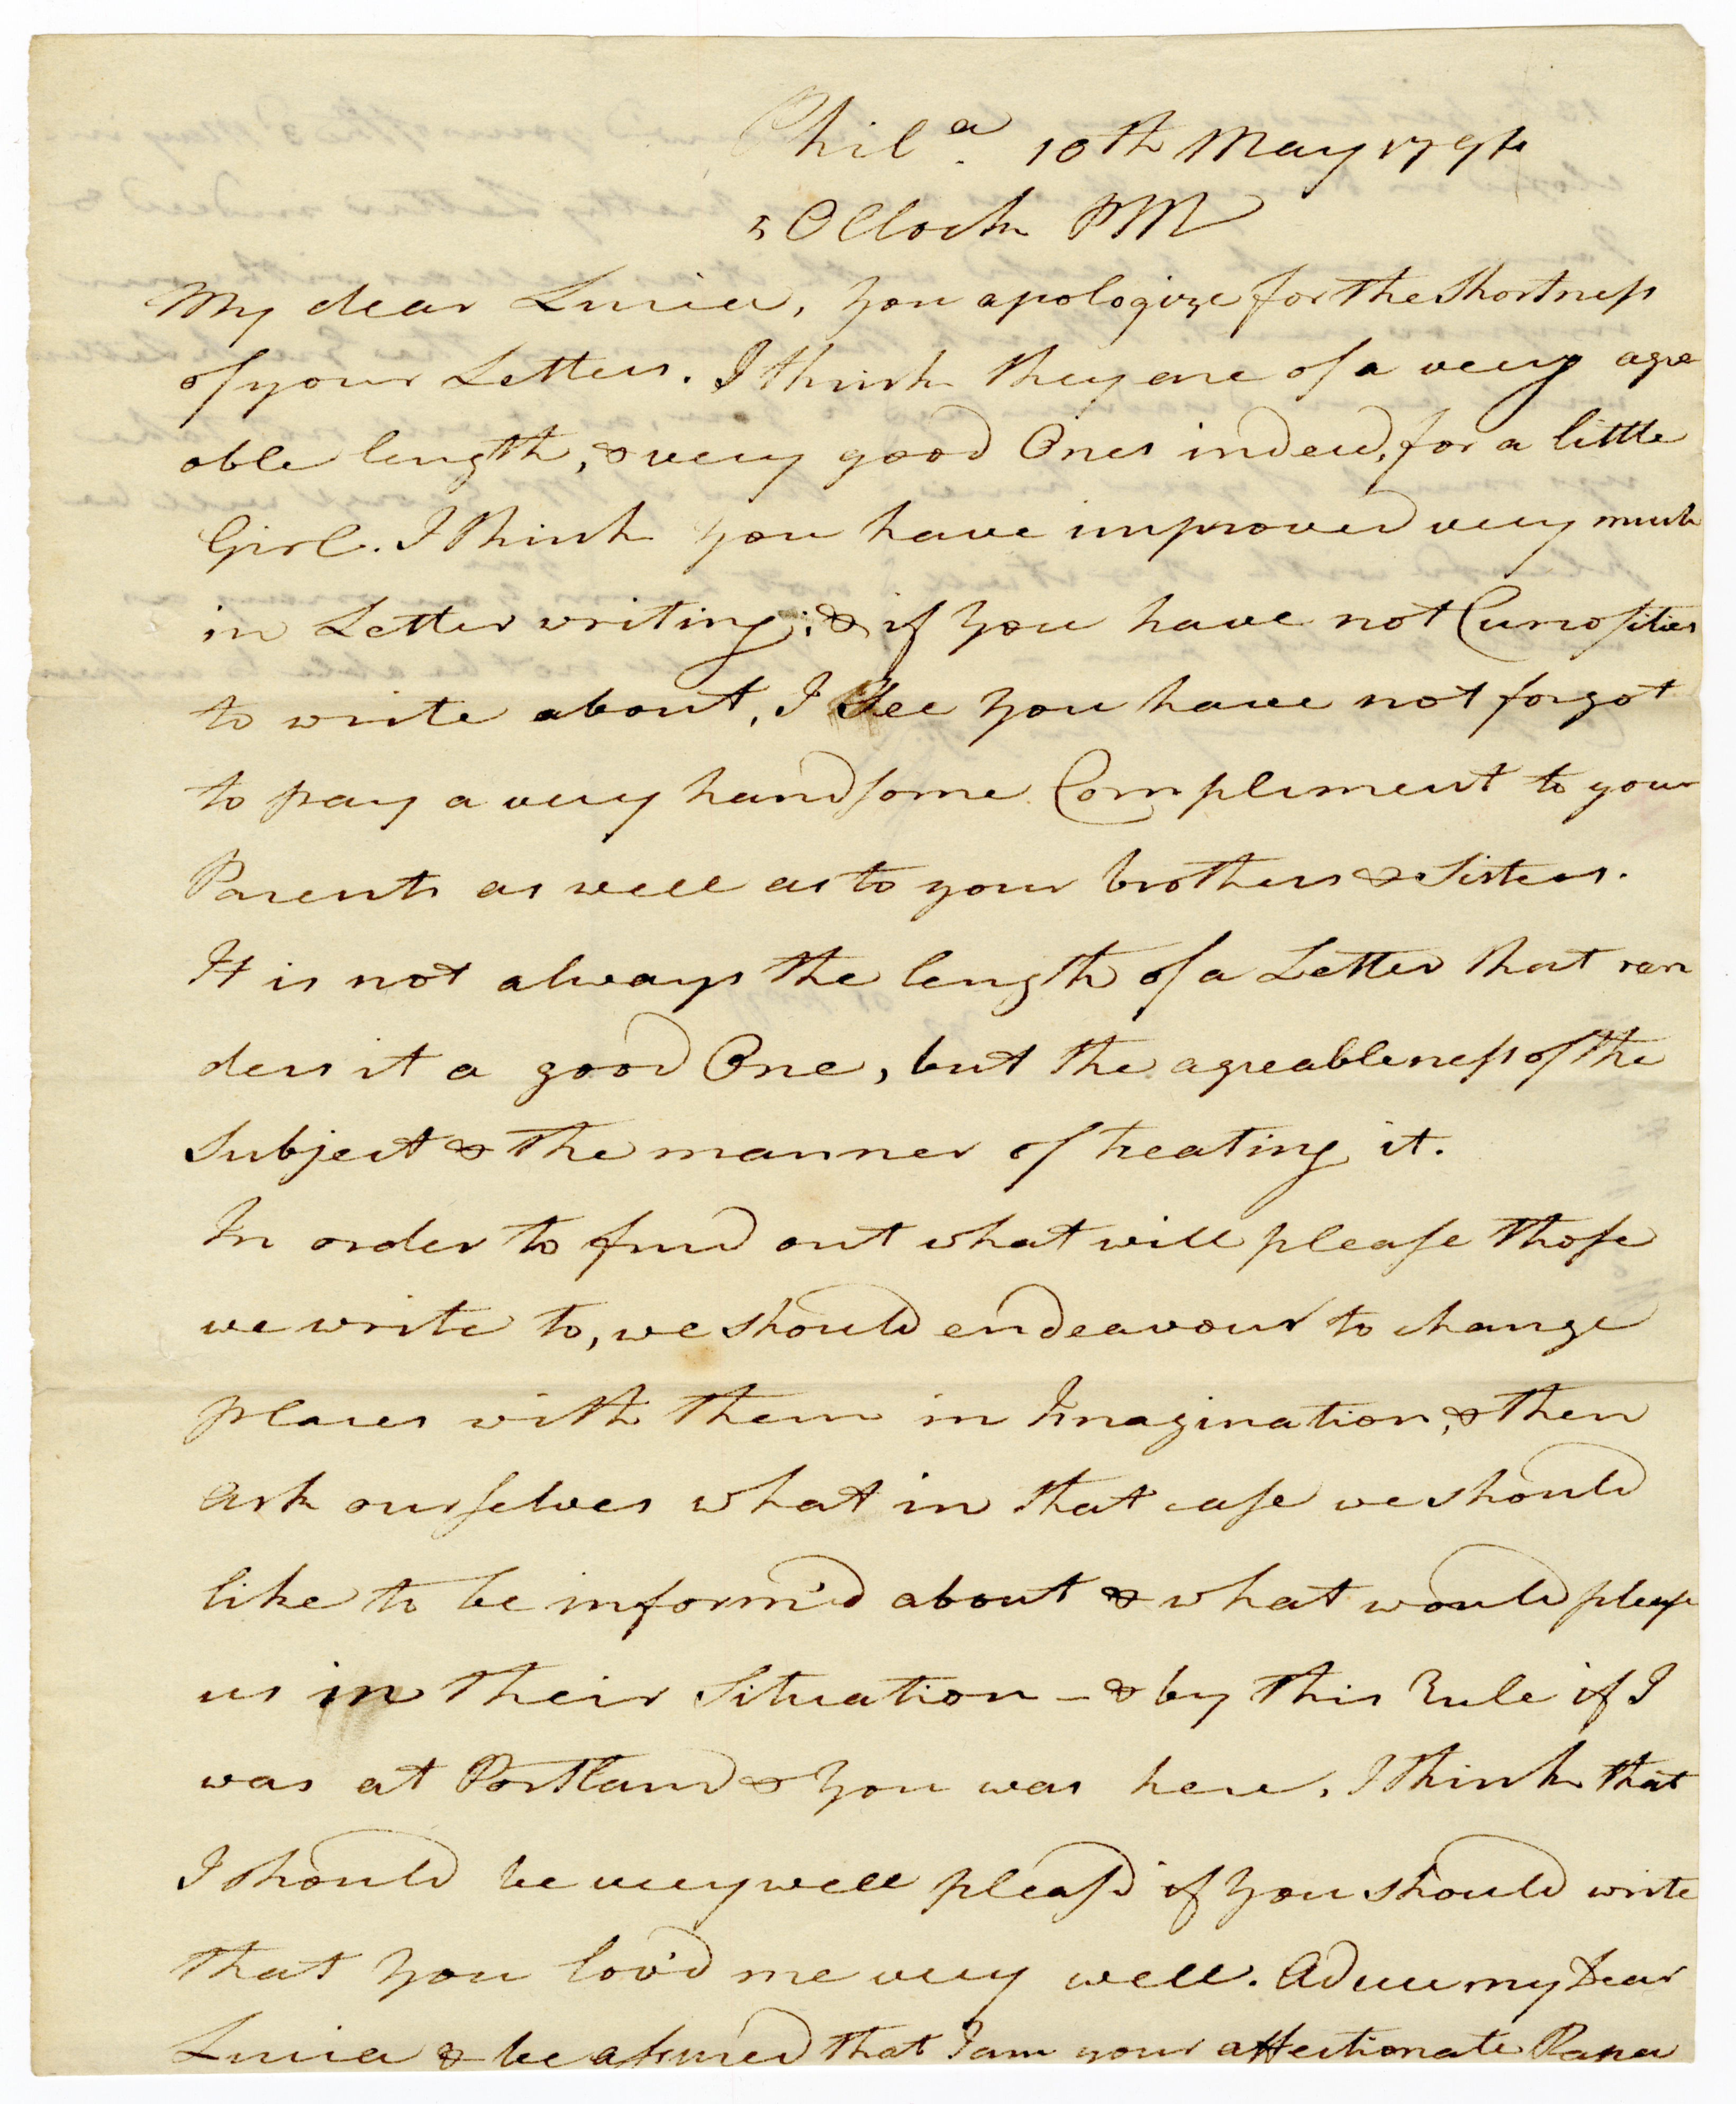 Phila. 10th May 1794
5 OClock PM
My dear Lucia, you apologize for the shortness
of your Letters. I think they are of a very agre
able length, & very good Ones indeed, for a little
Girl. I think you have improved very much
in Letter writing; & if you have not Curiosities
to write about, I See you have not forgot
to pay a very handsome Compliment to your
Parents as well as to your brothers & Sisters.
It is not always the length of a Letter that ren
ders it a good One, but the agreableness of the
Subject & the manner of treating it.
In order to find out what will please those
we write to, we should endeavour to change
places with them in Imagination, & then
ask ourselves what in that case we should
like to be inform'd about & what would please
us in their Situation – & by this Rule if I
was at Portland & you was here, I think that
I should be very well pleas'd if you should write
that you lov'd me very well. Adieu my Dear
Lucia & be assured that I am your affectionate Papa